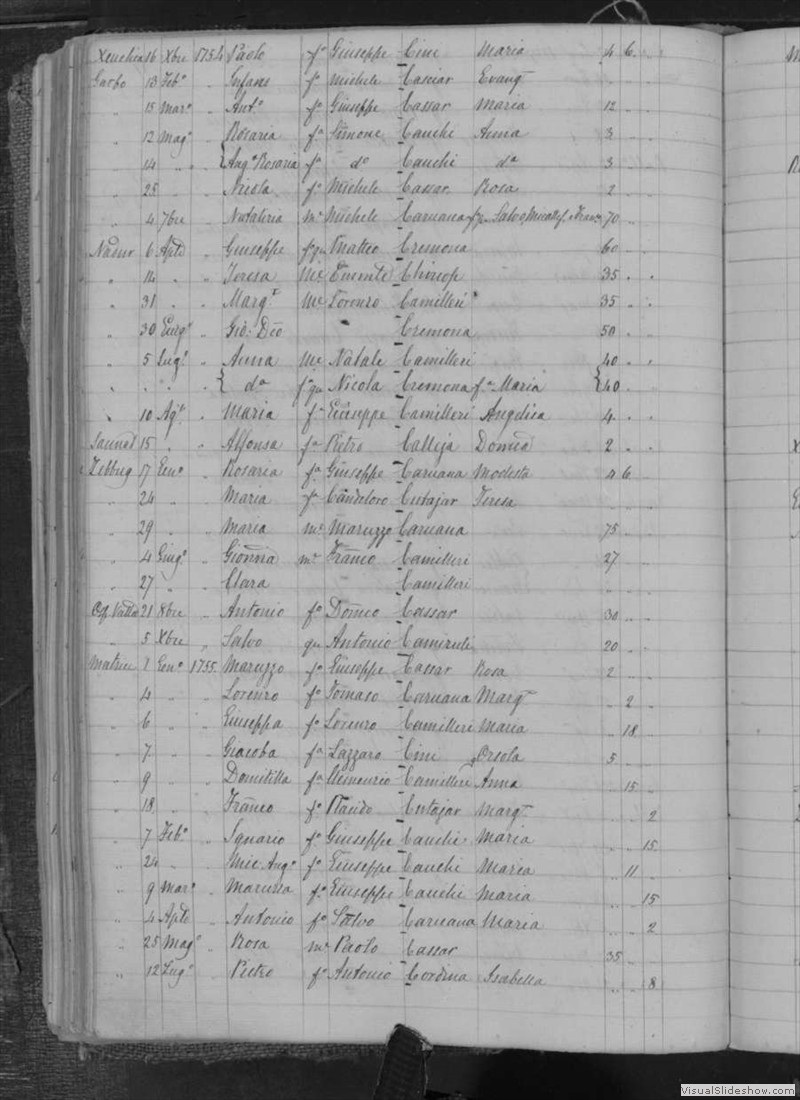 Xeuchia 16 Xbre 1754 Paolo fo Giuseppe Cini Maria 4 6
Garbo 13 Febo " Infans fo Michele Casciar Evangta
" 15 Maro " Anto fo Giuseppe Cassar Maria 12
" 12 Mago " Rosaria fa Simone Cauchi Anna 3
" 14 " " Anga Rosaria fa do Cauchi da 3
" 25 " " Nicola fo Michele Cassar Rosa 2
" 4 7bre " Natalizia me Michele Caruana 70
Nadur 6 Aple " Giuseppe fo qu Matteo Cremona 60
" 14 " " Teresa me Chircop 35
" 31 " " Margta me Lorenzo Camilleri 35
" 30 Giugo " Gio: Deo Cremona 50
" 5 Lugo " Anna me Natale Camilleri 40
" " " " da fa qu Nicola Cremona fa Maria 40
" 10 Ago " Maria fa Giuseppe Camilleri Angelica 4
Sannat 15 " " Alfonsa fa Pietro Calleja Domca 2
Zebbug 17 Geno " Rosaria fa Giuseppe Caruana Modesta 4 6
" 24 " " Maria fa Candeloro Cutajar Teresa
" 29 " " Maria me Maruzzo Caruana 75
" 4 Giugo " Gionna me Franco Camilleri 27
" 27 " " Clara Camilleri
21 8bre " Antonio fo Domco Cassar 30
" 5 Xbre " Salvo qu Antonio 20
Matrice 1 Geno 1755 Maruzzo fo Giuseppe Cassar Rosa 2
" 4 " " Lorenzo fo Tomaso Caruana Margta 2
" 6 " " Giuseppa fa Lorenzo Camilleri Maria 18
" 7 " " Giacoba fa Lazzaro Cini Orsola 5
" 9 " " Domitilla fa Camilleri Anna 15
" 18 " " Franco fo Placido Cutajar Margta 2
" 7 Febo " Ignazio fo Giuseppe Cauchi Maria 15
" 24 " " Mic Ango fo Giuseppe Cauchi Maria 11
" 9 Maro " Maruzza fa Giuseppe Cauchi Maria 15
" 4 Aple " Antonio fo Salvo Caruana Maria 2
" 25 Mago " Rosa me Paolo Cassar 35
" 12 Lugo " Pietro fo Antonio Cordina Isabella 8
VisualSlideshow.com